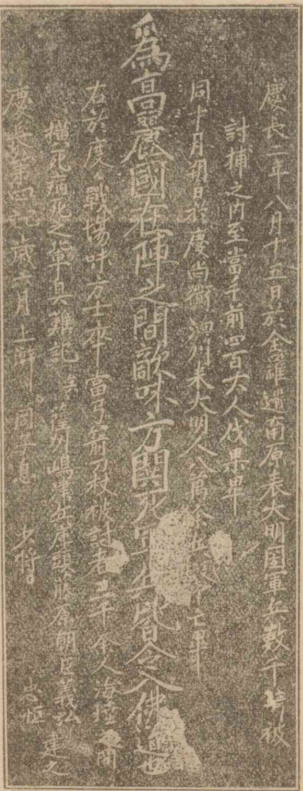 慶長二年八月十五日於全羅道南原表大明國軍兵數千騎被
討捕之內至當手前四百廿人伐果畢
同十月朔日於慶尚道泗川表大明人八萬餘兵擊亡畢
為高麗國在陣之間敵味方閧死軍兵皆令入佛道也
右於度々戰場味方士卒當弓箭刀杖被討者三千餘人海陸之間
橫死病死之輩具難記
薩州嶋津兵庫頭藤原朝臣義弘 建之
慶長第四己亥歲六月上澣 同子息少將忠恒